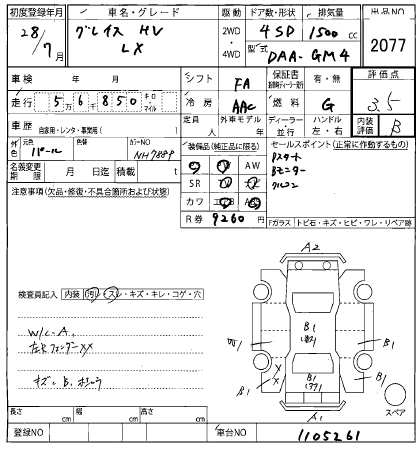 初度登録年月 車名・グレード 駆動 ドア数・形状 排気量 出品NO
28/7月 グレイス HV LX 2WD・4WD 4SD 1500cc 2077
型式 DAA-GM4
車検 年 月 シフト FA 保証書 有・無 評価点
走行 56850 キロ・マイル 冷房 AAC 燃料 G 3.5
車歴 自家用・レンタ・事業用( ) 定員 人 外車モデル 年 ディーラー 並行 ハンドル 左・右 内装評価 B
外色 元色 パール 色替 カラーNO NH788P 装備品(純正品に限る) セールスポイント(正常に作動するもの)
名義変更期限 月 日迄 積載 t AW Pスタート
SR Bモニター
注意事項(欠品・修復・不具合箇所および状態) カワ
R券 9260円 Fガラス トビ石・キズ・ヒビ・ワレ・リペア跡
A2
検査員記入 内装 汚レ・スレ・キズ・キレ・コゲ・穴
W/C-A
左Rフェンダー XX
キズ B
W1 B1 B1
B1 X X B1 B1
A1 スペア
長さ cm 幅 cm 高さ cm
登録NO 車台NO 1105261